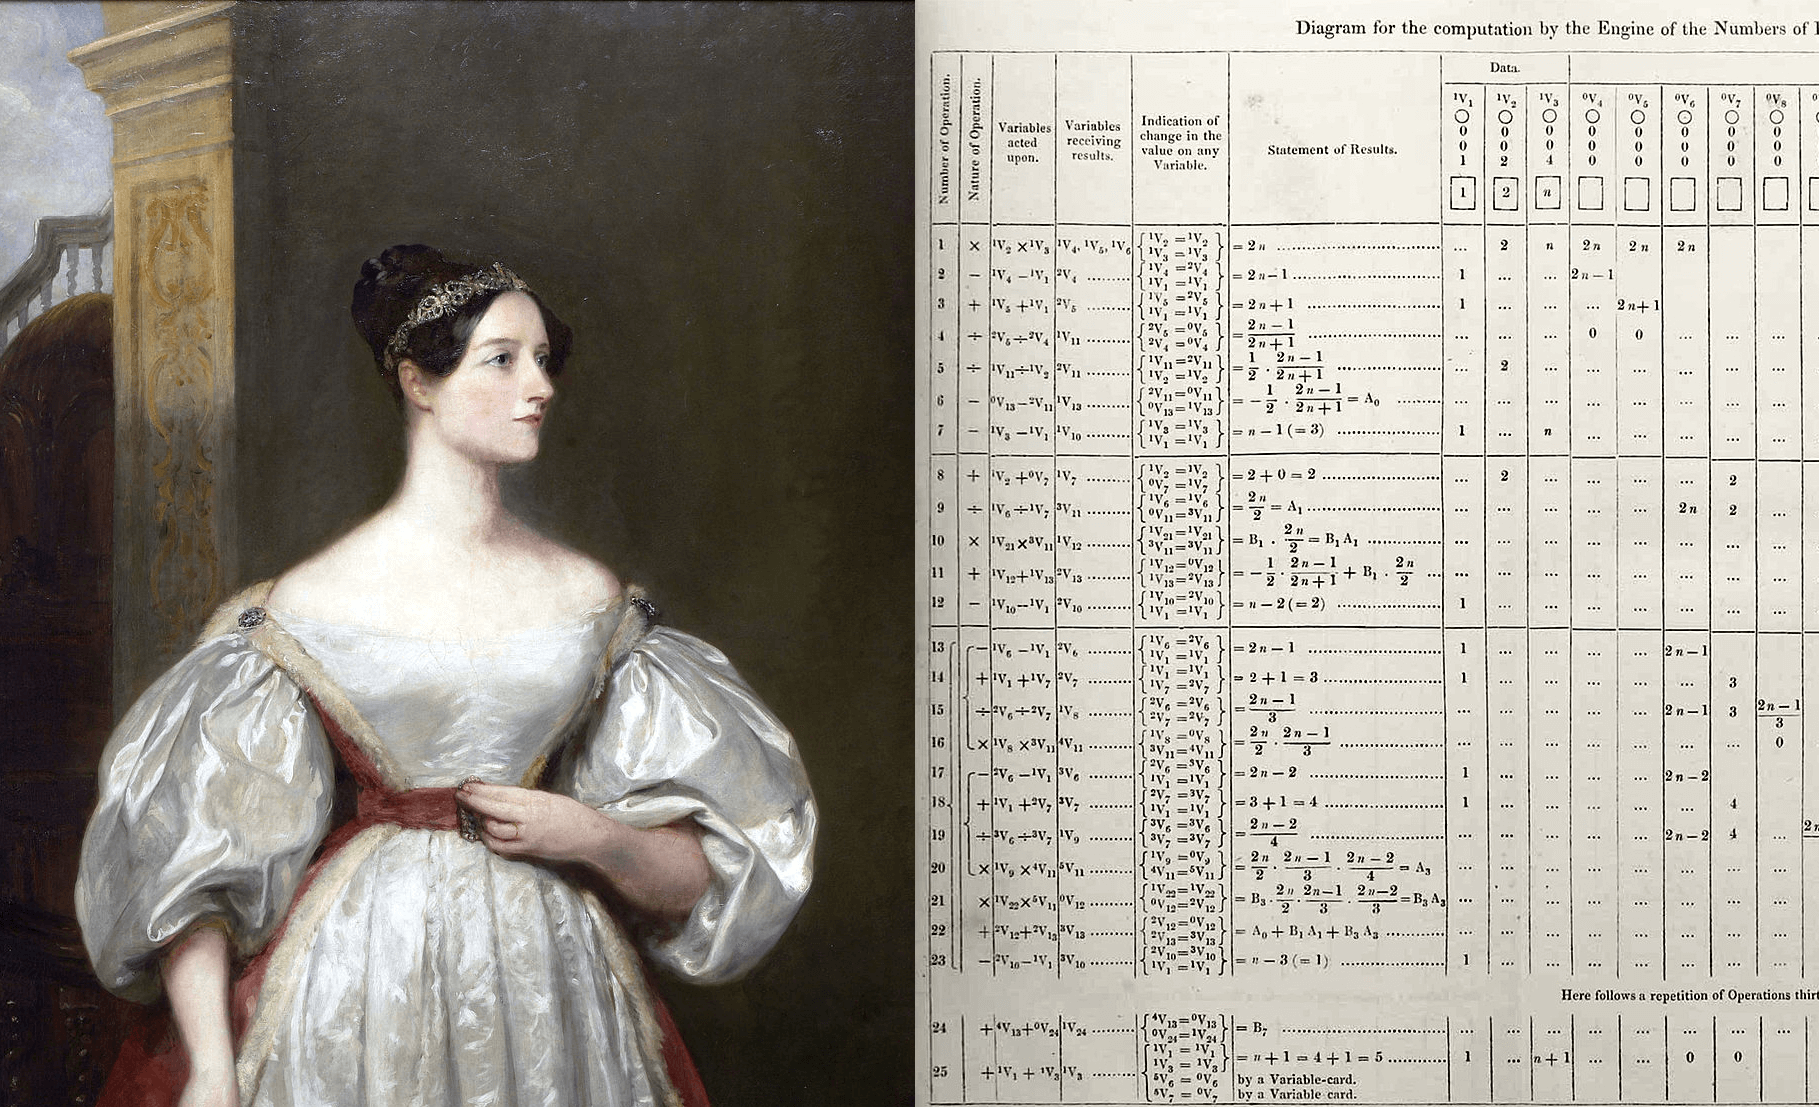 Diagram for the computation by the Engine of the Numbers of
Data.
Number of Operation.
Nature of Operation.
Variables acted upon.
Variables receiving results.
Indication of change in the value on any Variable.
Statement of Results.
¹V₁ ¹V₂ ¹V₃ ⁰V₄ ⁰V₅ ⁰V₆ ⁰V₇ ⁰V₈
○ ○ ○ ○ ○ ○ ○ ○
0 0 0 0 0 0 0 0
0 0 0 0 0 0 0 0
1 2 4 0 0 0 0 0
1 2 n
1 × ¹V₂ × ¹V₃ ¹V₄, ¹V₅, ¹V₆ { ¹V₂ = ¹V₂ ¹V₃ = ¹V₃ } = 2n ... 2 n 2n 2n 2n
2 − ¹V₄ − ¹V₁ ²V₄ { ¹V₄ = ²V₄ ¹V₁ = ¹V₁ } = 2n − 1 1 ... ... 2n − 1
3 + ¹V₅ + ¹V₁ ²V₅ { ¹V₅ = ²V₅ ¹V₁ = ¹V₁ } = 2n + 1 1 ... ... ... 2n + 1
4 ÷ ²V₅ ÷ ²V₄ ¹V₁₁ { ²V₅ = ⁰V₅ ²V₄ = ⁰V₄ } = (2n − 1)/(2n + 1) ... ... ... 0 0 ... ... ...
5 ÷ ¹V₁₁ ÷ ¹V₂ ²V₁₁ { ¹V₁₁ = ²V₁₁ ¹V₂ = ¹V₂ } = 1/2 . (2n − 1)/(2n + 1) ... 2 ... ... ... ... ... ...
6 − ⁰V₁₃ − ²V₁₁ ¹V₁₃ { ²V₁₁ = ⁰V₁₁ ⁰V₁₃ = ¹V₁₃ } = − 1/2 . (2n − 1)/(2n + 1) = A₀ ... ... ... ... ... ... ... ...
7 − ¹V₃ − ¹V₁ ¹V₁₀ { ¹V₃ = ¹V₃ ¹V₁ = ¹V₁ } = n − 1 (= 3) 1 ... n ... ... ... ... ...
8 + ¹V₂ + ⁰V₇ ¹V₇ { ¹V₂ = ¹V₂ ⁰V₇ = ¹V₇ } = 2 + 0 = 2 ... 2 ... ... ... ... 2
9 ÷ ¹V₆ ÷ ¹V₇ ³V₁₁ { ¹V₆ = ¹V₆ ⁰V₁₁ = ³V₁₁ } = 2n/2 = A₁ ... ... ... ... ... 2n 2 ...
10 × ¹V₂₁ × ³V₁₁ ¹V₁₂ { ¹V₂₁ = ¹V₂₁ ³V₁₁ = ³V₁₁ } = B₁ . 2n/2 = B₁ A₁ ... ... ... ... ... ... ... ...
11 + ¹V₁₂ + ¹V₁₃ ²V₁₃ { ¹V₁₂ = ⁰V₁₂ ¹V₁₃ = ²V₁₃ } = − 1/2 . (2n − 1)/(2n + 1) + B₁ . 2n/2 ... ... ... ... ... ... ... ...
12 − ¹V₁₀ − ¹V₁ ²V₁₀ { ¹V₁₀ = ²V₁₀ ¹V₁ = ¹V₁ } = n − 2 (= 2) 1 ... ... ... ... ... ... ...
13 − ¹V₆ − ¹V₁ ²V₆ { ¹V₆ = ²V₆ ¹V₁ = ¹V₁ } = 2n − 1 1 ... ... ... ... 2n − 1
14 + ¹V₁ + ¹V₇ ²V₇ { ¹V₁ = ¹V₁ ¹V₇ = ²V₇ } = 2 + 1 = 3 1 ... ... ... ... ... 3
15 ÷ ²V₆ ÷ ²V₇ ¹V₈ { ²V₆ = ²V₆ ²V₇ = ²V₇ } = (2n − 1)/3 ... ... ... ... ... 2n − 1 3 (2n − 1)/3
16 × ¹V₈ × ³V₁₁ ⁴V₁₁ { ¹V₈ = ⁰V₈ ³V₁₁ = ⁴V₁₁ } = 2n/2 . (2n − 1)/3 ... ... ... ... ... ... ... 0
17 − ²V₆ − ¹V₁ ³V₆ { ²V₆ = ³V₆ ¹V₁ = ¹V₁ } = 2n − 2 1 ... ... ... ... 2n − 2
18 + ¹V₁ + ²V₇ ³V₇ { ²V₇ = ³V₇ ¹V₁ = ¹V₁ } = 3 + 1 = 4 1 ... ... ... ... ... 4
19 ÷ ³V₆ ÷ ³V₇ ¹V₉ { ³V₆ = ³V₆ ³V₇ = ³V₇ } = (2n − 2)/4 ... ... ... ... ... 2n − 2 4 ...
20 × ¹V₉ × ⁴V₁₁ ⁵V₁₁ { ¹V₉ = ⁰V₉ ⁴V₁₁ = ⁵V₁₁ } = 2n/2 . (2n − 1)/3 . (2n − 2)/4 = A₃ ... ... ... ... ... ... ... ...
21 × ¹V₂₂ × ⁵V₁₁ ⁰V₁₂ { ¹V₂₂ = ¹V₂₂ ⁰V₁₂ = ²V₁₂ } = B₃ . 2n/2 . (2n − 1)/3 . (2n − 2)/3 = B₃ A₃ ... ... ... ... ... ... ... ...
22 + ²V₁₂ + ²V₁₃ ³V₁₃ { ²V₁₂ = ⁰V₁₂ ²V₁₃ = ³V₁₃ } = A₀ + B₁ A₁ + B₃ A₃ ... ... ... ... ... ... ... ...
23 − ²V₁₀ − ¹V₁ ³V₁₀ { ²V₁₀ = ³V₁₀ ¹V₁ = ¹V₁ } = n − 3 (= 1) 1 ... ... ... ... ... ... ...
Here follows a repetition of Operations
24 + ⁴V₁₃ + ⁰V₂₄ ¹V₂₄ { ⁴V₁₃ = ⁰V₁₃ ⁰V₂₄ = ¹V₂₄ } = B₇ ... ... ... ... ... ... ... ...
25 + ¹V₁ + ¹V₃ ¹V₃ { ¹V₁ = ¹V₁ ¹V₃ = ¹V₃ = n + 1 = 4 + 1 = 5 1 ... n + 1 ... ... 0 0
⁵V₆ = ⁰V₆ by a Variable-card.
⁵V₇ = ⁰V₇ by a Variable card.